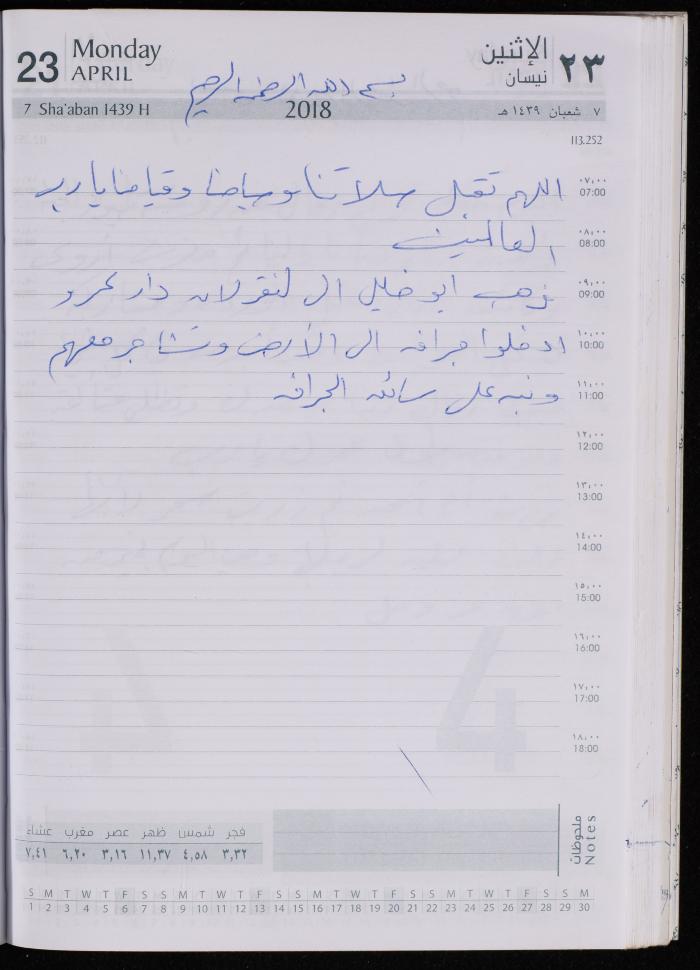 23 Monday APRIL
الإثنين نيسان ٢٣
بسم الله الرحمن الرحيم
7 Sha'aban 1439 H 2018 ٧ شعبان ١٤٣٩ هـ
113.252
٠٧,٠٠ 07:00 اللهم تقبل سلاتنا وسيامنا وقيامنا يا رب
٠٨,٠٠ 08:00 العالمين
٠٩,٠٠ 09:00 ذهب ابو خليل ال لنقر لان دار عمرو
١٠,٠٠ 10:00 ادخلوا جرافه ال الأرض وتشاجر معهم
١١,٠٠ 11:00 ونبه عل سائق الجرافه
١٢,٠٠ 12:00
١٣,٠٠ 13:00
١٤,٠٠ 14:00
١٥,٠٠ 15:00
١٦,٠٠ 16:00
١٧,٠٠ 17:00
١٨,٠٠ 18:00
4
ملحوظات Notes
فجر شمس ظهر عصر مغرب عشاء
٣,٣٢ ٤,٥٨ ١١,٣٧ ٣,١٦ ٦,٢٠ ٧,٤١
S M T W T F S S M T W T F S S M T W T F S S M T W T F S S M
1 2 3 4 5 6 7 8 9 10 11 12 13 14 15 16 17 18 19 20 21 22 23 24 25 26 27 28 29 30